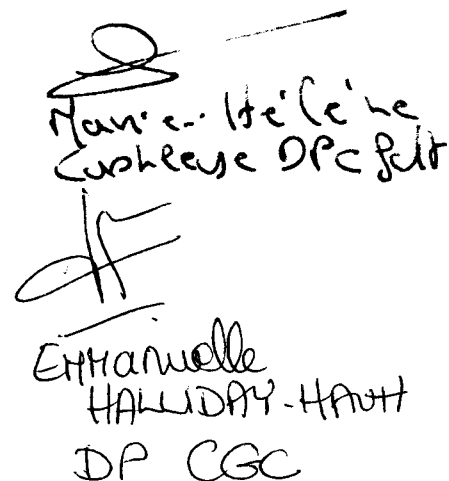 Marie-Hélène
DPCfdt
Emmanuelle
HALLIDAY-HAUTH
DP CGC